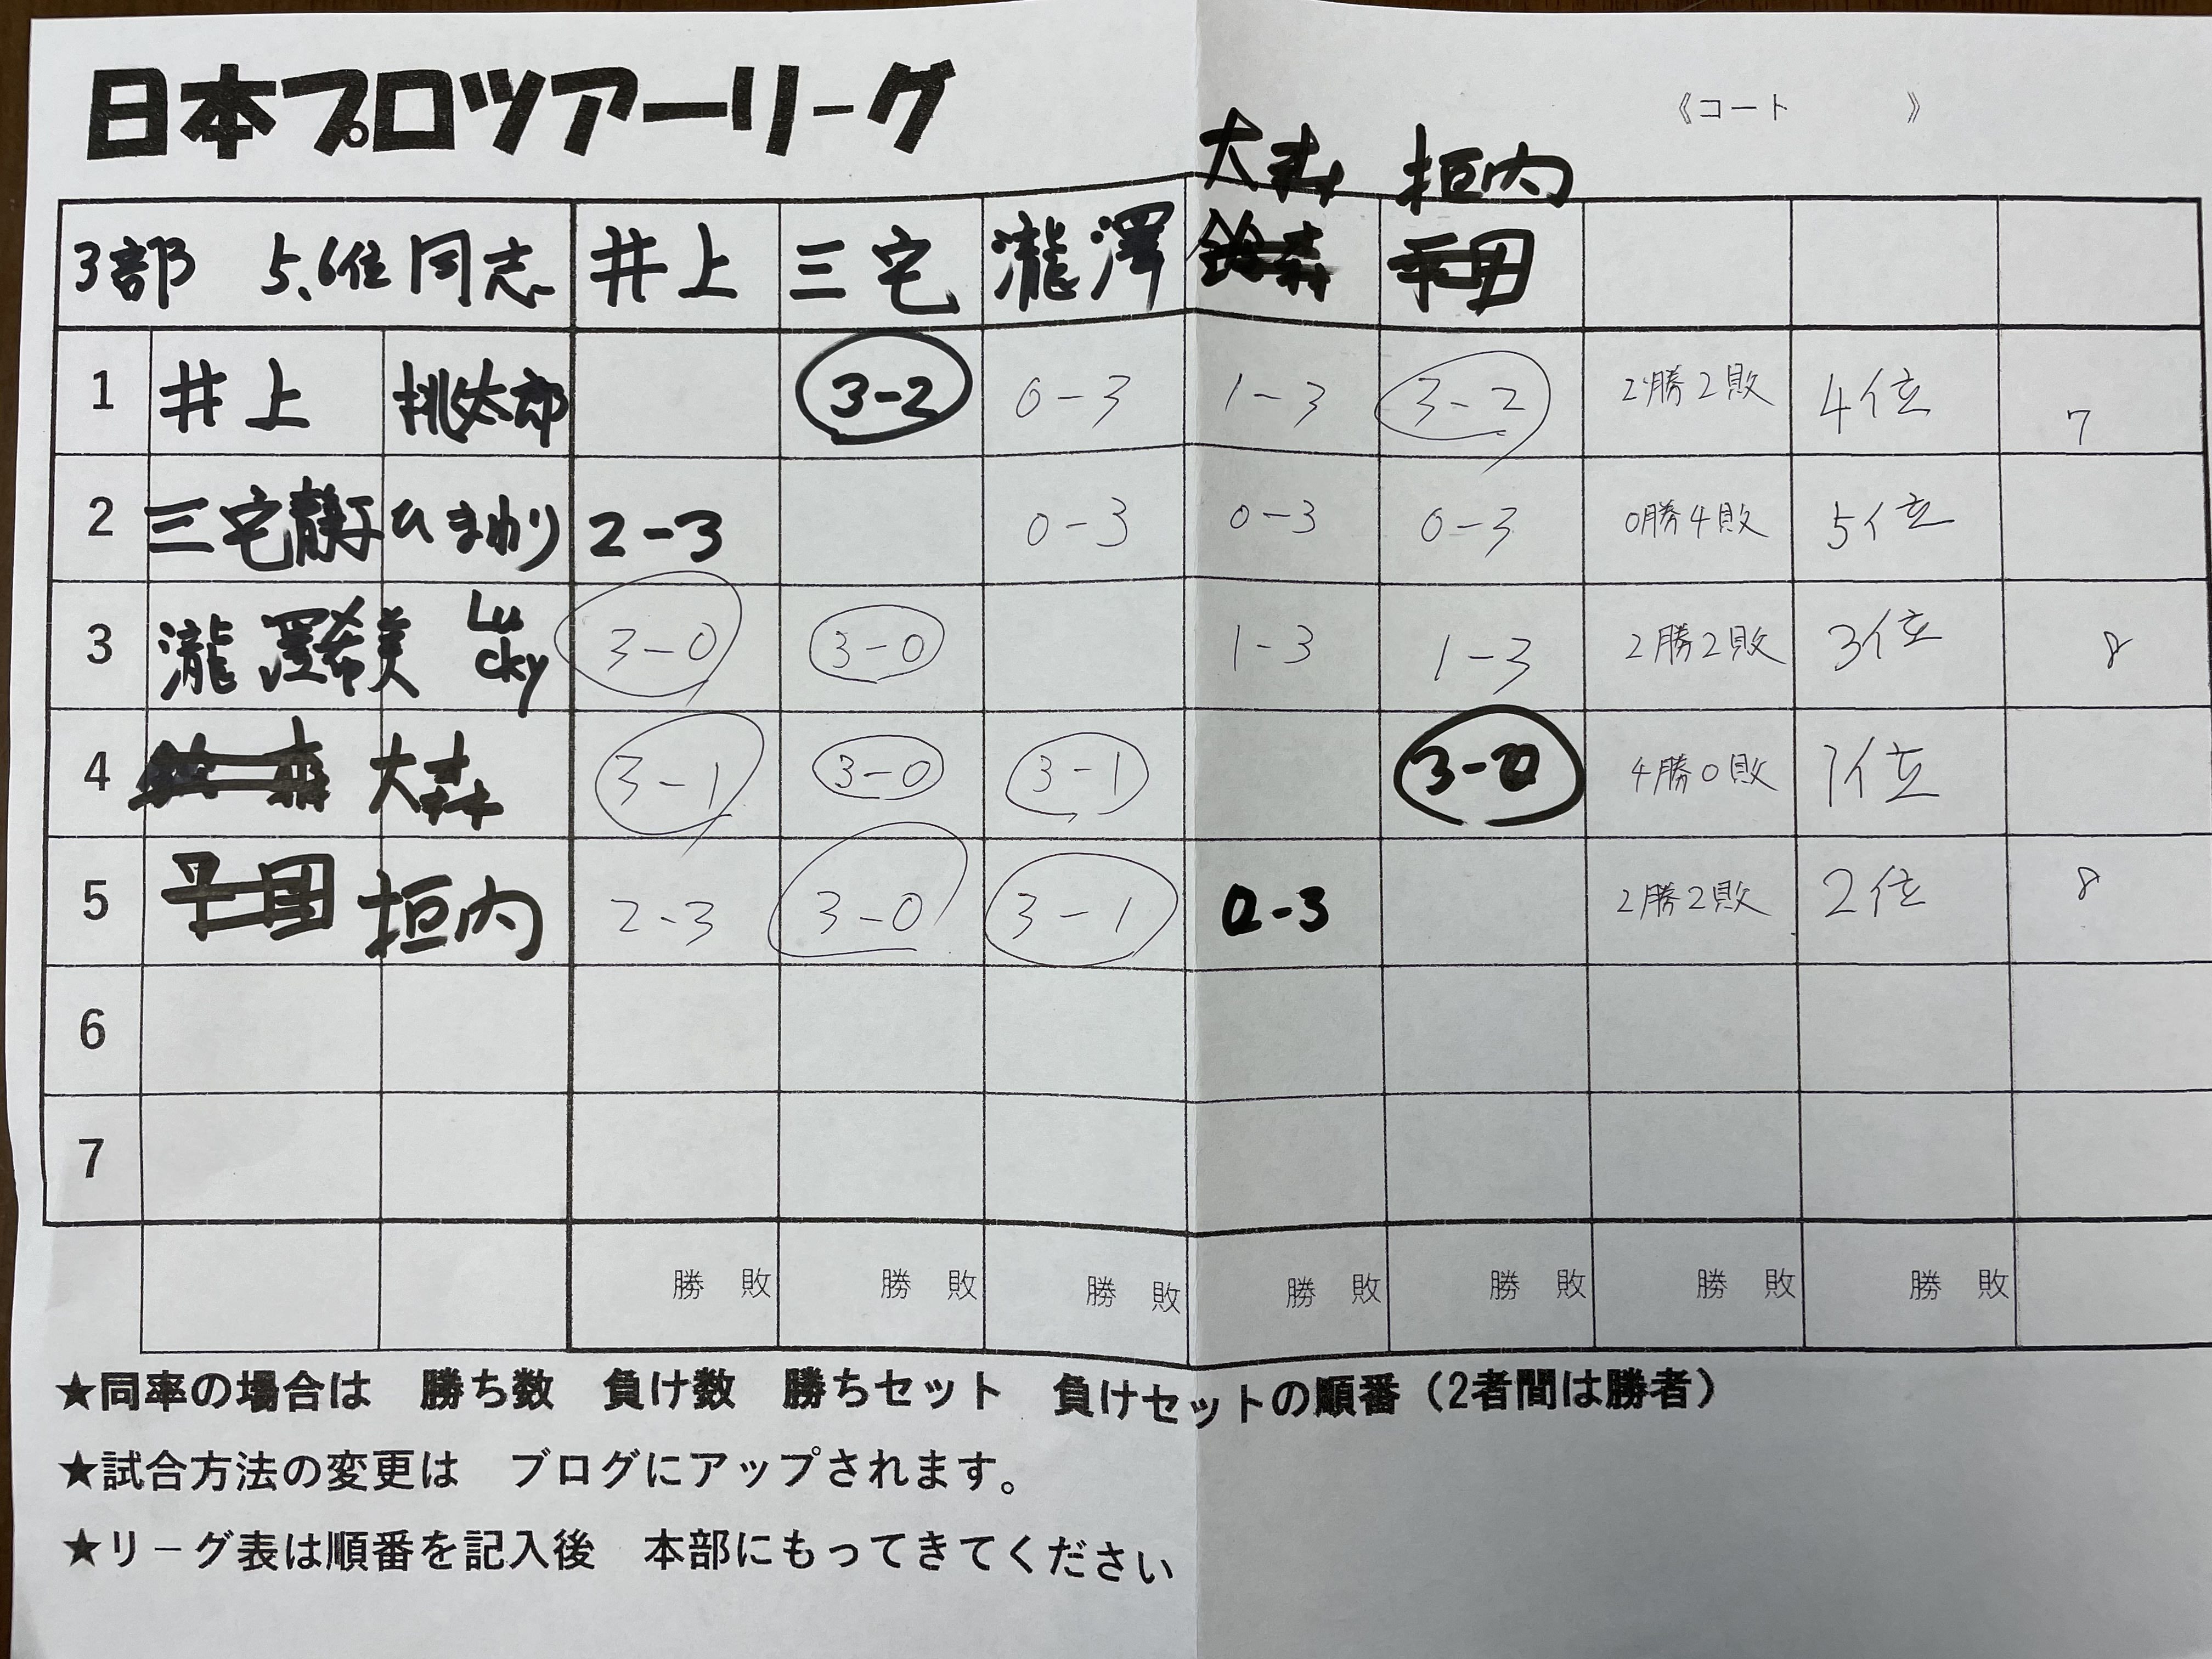 日本プロツアーリーグ
《コート　　　》
大森 垣内
3部 5.6位同志 井上 三宅 瀧澤
1 井上 桃太郎 3-2 0-3 1-3 3-2 2勝2敗 4位 7
2 三宅静子 ひまわり 2-3 0-3 0-3 0-3 0勝4敗 5位
3 瀧澤希美 Lucky 3-0 3-0 1-3 1-3 2勝2敗 3位 8
4 大森 3-1 3-0 3-1 3-0 4勝0敗 1位
5 垣内 2-3 3-0 3-1 0-3 2勝2敗 2位 8
6
7
勝 敗 勝 敗 勝 敗 勝 敗 勝 敗 勝 敗 勝 敗
★同率の場合は 勝ち数 負け数 勝ちセット 負けセットの順番（2者間は勝者）
★試合方法の変更は ブログにアップされます。
★リーグ表は順番を記入後 本部にもってきてください